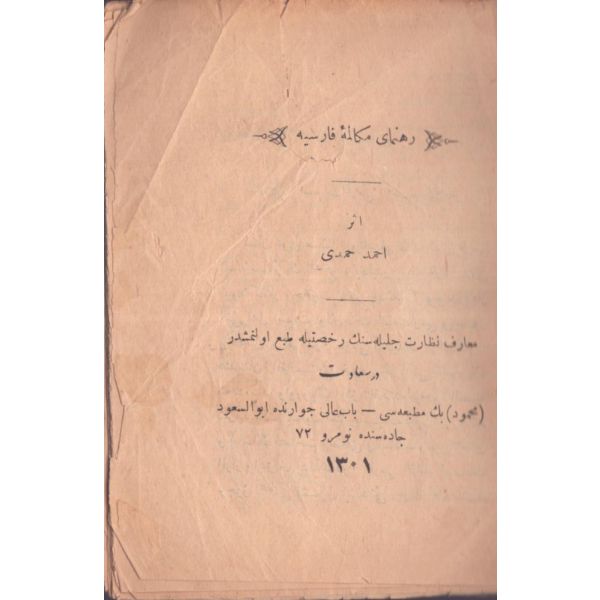 رهنمای مکالمهٔ فارسیه
اثر
احمد حمدی
معارف نظارت جلیله‌سنك رخصتیله طبع اولنمشدر
درسعادت
(محمود) بك مطبعه‌سی — باب عالی جوارنده ابوالسعود
جاده‌سنده نومرو ۷۲
۱۳۰۱